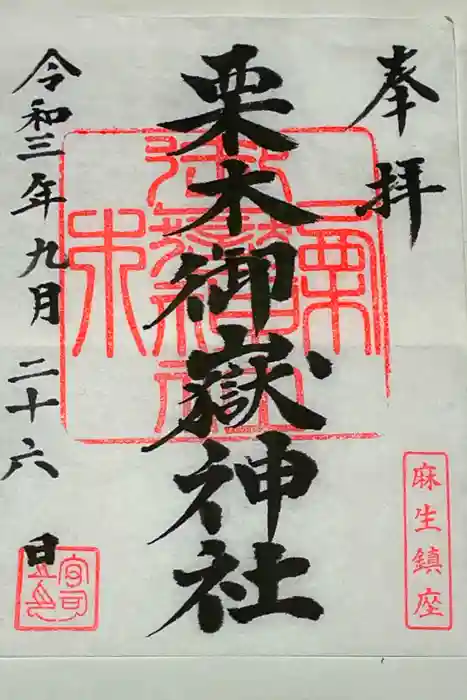 奉拝
麻生鎮座
栗木御嶽神社
令和三年九月二十六日
宮司之印